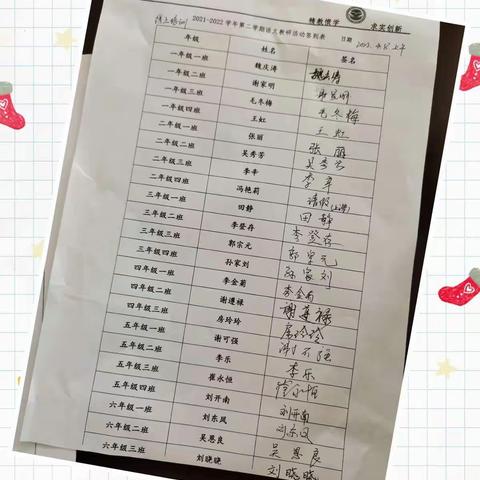 精教慎学 求实创新
线上培训 2021-2022学年第二学期语文教研活动签到表 日期 2022.4.8上午
年级 姓名 签名
一年级一班 魏庆涛 魏庆涛
一年级二班 谢家明 谢家明
一年级三班 毛冬梅 毛冬梅
一年级四班 王虹 王虹
二年级一班 张丽 张丽
二年级二班 吴秀芳 吴秀芳
二年级三班 李辛 李辛
二年级四班 冯艳莉 请假
三年级一班 田静 田静
三年级二班 李登存 李登存
三年级三班 郭宗元 郭宗元
三年级四班 孙家刘 孙家刘
四年级一班 李金菊 李金菊
四年级二班 谢遵禄 谢遵禄
四年级三班 房玲玲 房玲玲
五年级一班 谢可强 谢可强
五年级二班 李乐 李乐
五年级三班 崔永恒 崔永恒
五年级四班 刘开南 刘开南
六年级一班 刘东凤 刘东凤
六年级二班 吴思良 吴思良
六年级三班 刘晓晓 刘晓晓